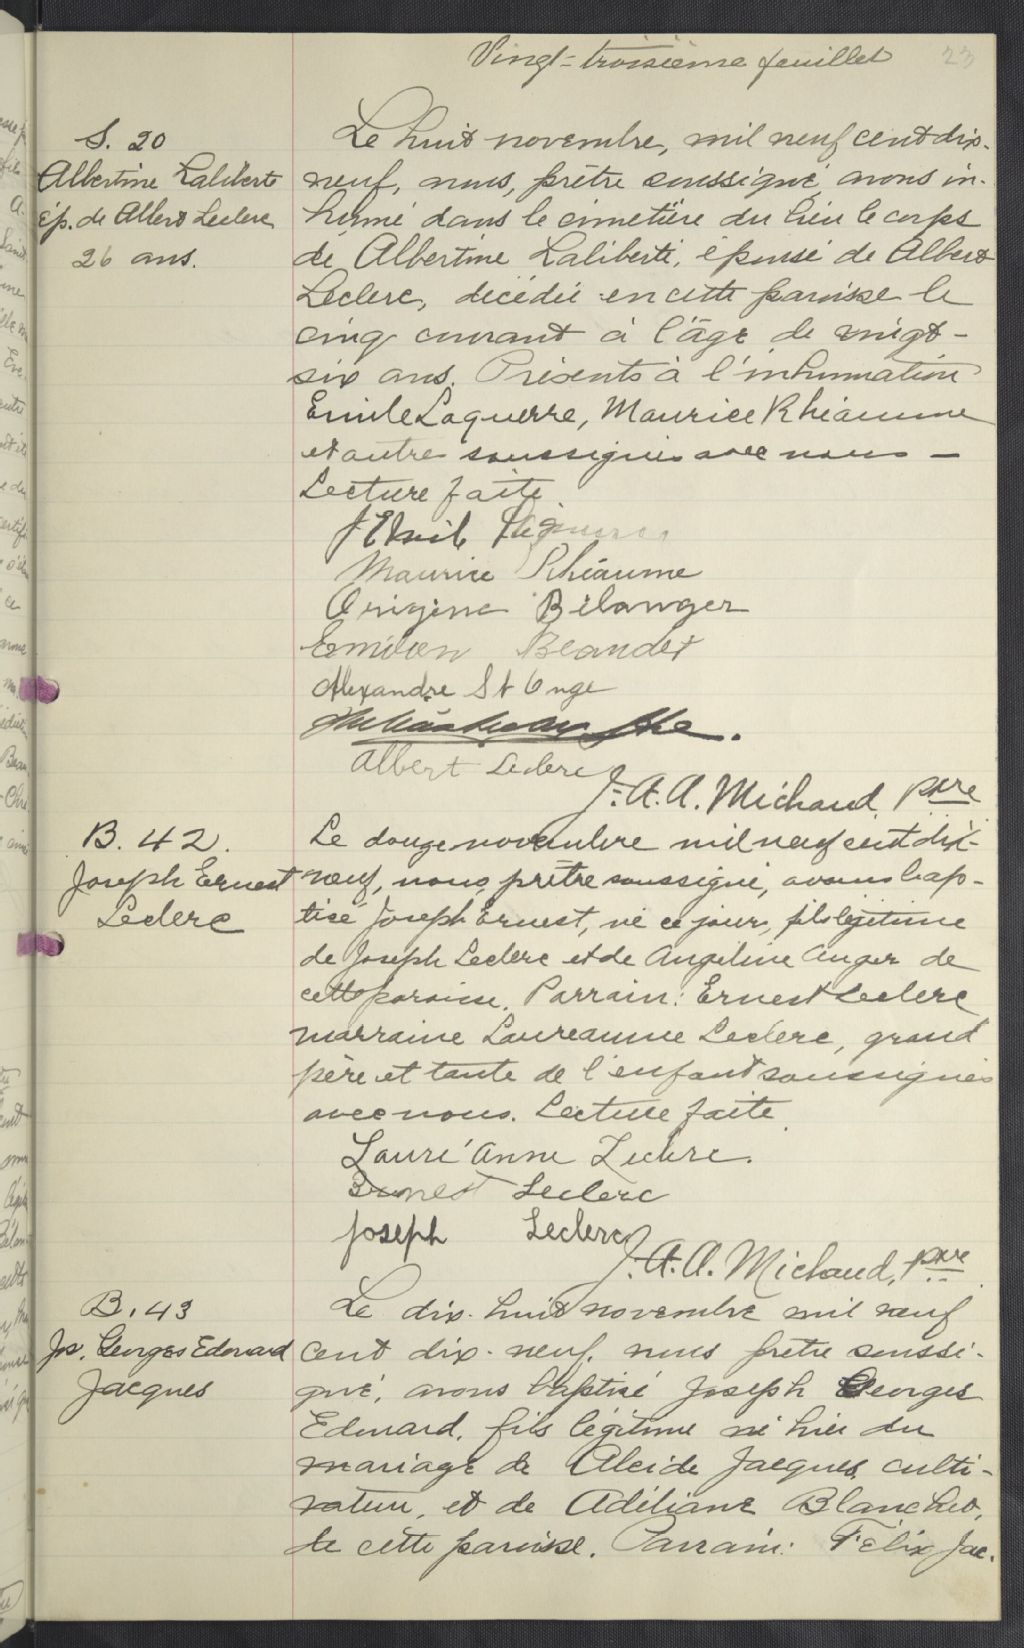 Vingt-troisième feuillet 23
S. 20
Albertine Laliberté
ép. de Albert Leclerc
26 ans.
Le huit novembre, mil neuf cent dix-
neuf, nous, prêtre soussigné, avons in-
humé dans le cimetière du lieu le corps
de Albertine Laliberté, épouse de Albert
Leclerc, décédée en cette paroisse le
cinq courant à l'âge de vingt-
six ans. Présents à l'inhumation
Emile Laguerre, Maurice Rhéaume
et autres soussignés avec nous —
Lecture faite
J Emile
Maurice Rhéaume
Origène Bélanger
Emilien Beaudet
Alexandre St Onge
Albert Leclerc
J. A. A. Michaud, ptre
B. 42.
Joseph Ernest
Leclerc
Le douze novembre mil neuf cent dix-
neuf, nous, prêtre soussigné, avons bap-
tisé Joseph Ernest, né ce jour, fils légitime
de Joseph Leclerc et de Angéline Auger de
cette paroisse. Parrain: Ernest Leclerc
marraine Lauréanne Leclerc, grand
père et tante de l'enfant soussignés
avec nous. Lecture faite.
Lauré Anne Leclerc.
Ernest Leclerc
Joseph Leclerc
J. A. A. Michaud, ptre
B. 43
Jos. Georges Edouard
Jacques
Le dix-huit novembre mil neuf
cent dix-neuf, nous prêtre soussi-
gné, avons baptisé Joseph Georges
Edouard, fils légitime né hier du
mariage de Alcide Jacques, culti-
vateur, et de Adéliane Blanchet,
de cette paroisse. Parrain: Félix Jac-